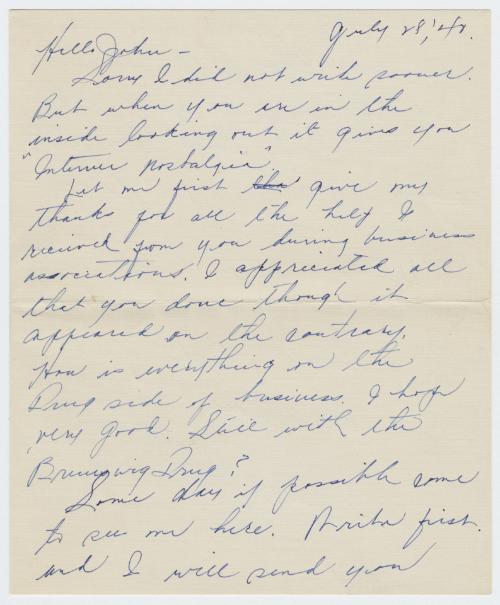 July 28, '42.
Hello John —
Sorry I did not write sooner.
But when you are in the
inside looking out it gives you
"Internee nostalgia".
Let me first the give my
thanks for all the help I
received from you during business
associations. I appreciated all
that you done though it
appeared on the contrary.
How is everything on the
Drug side of business. I hope
very good. Still with the
Brunswig Drug?
Some day if possible come
to see me here. Write first
and I will send you